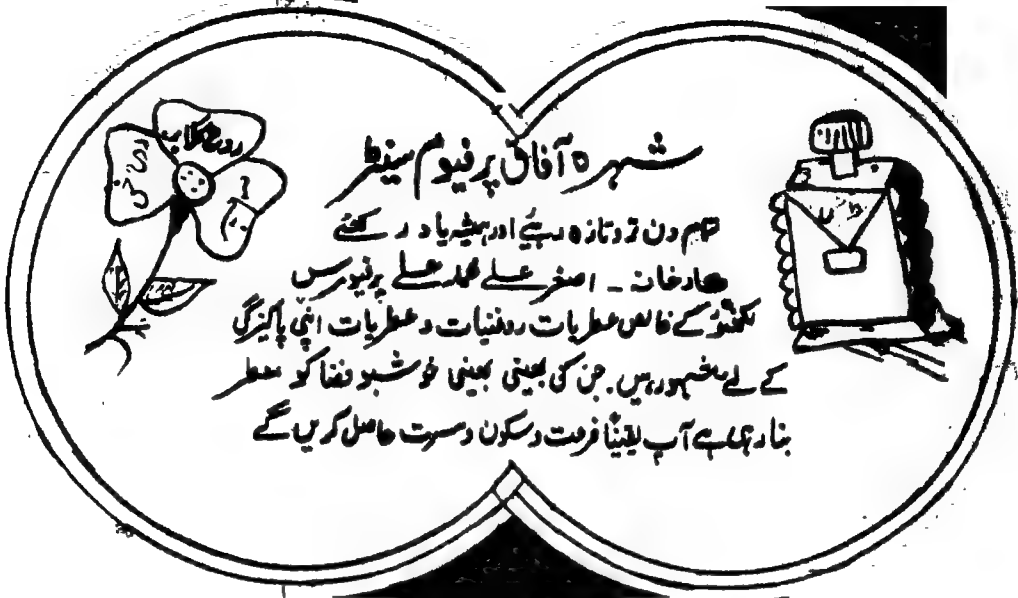 شہرہ آفاق پرفیوم سینٹر
تمام دن تروتازہ رہیئے اور ہمیشہ یاد رکھئے
کارخانہ ۔ اصغر علے محمد علے پرفیومرس
لکھنؤ کے خالص عطریات روغنیات و عطریات اپنی پاکیزگی
کے لے مشہور ہیں. جن کی بھینی بھینی خوشبو فضا کو معطر
بنا رہی ہے آپ یقیناً فرحت و سکون و مسرت حاصل کریں گے
روح گلاب
روح خس